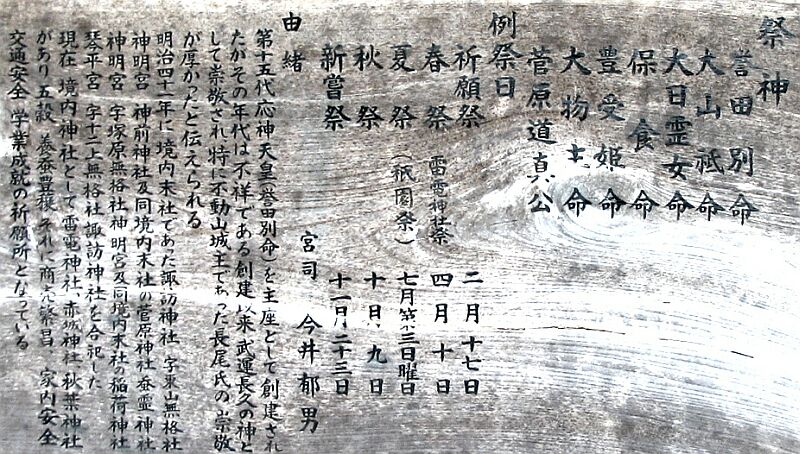 祭神
誉田別命
大山祇命
大日霊女命
保食命
豊受姫命
大物主命
菅原道真公
例祭日
祈願祭 二月十七日
春祭 雷電神社祭 四月十日
夏祭（祇園祭） 七月第三日曜日
秋祭 十月九日
新嘗祭 十一月二十三日
宮司 今井郁男
由緒
第十五代応神天皇（誉田別命）を主座として創建され
たがその年代は不祥である創建以来武運長久の神と
して崇敬され特に不動山城主であった長尾氏の崇敬
が厚かったと伝えられる
明治四十一年に境内末社であた諏訪神社 字東山無格社
神明宮 神前神社及同境内末社の菅原神社蚕霊神社
神明宮 字塚原無格社神明宮及同境内末社の稲荷神社
琴平宮 字十二上無格社諏訪神社を合祀した
現在 境内神社として雷電神社、赤城神社、秋葉神社
があり五穀 養蚕豊穣 それに商売繁昌、家内安全
交通安全 学業成就の祈願所となっている